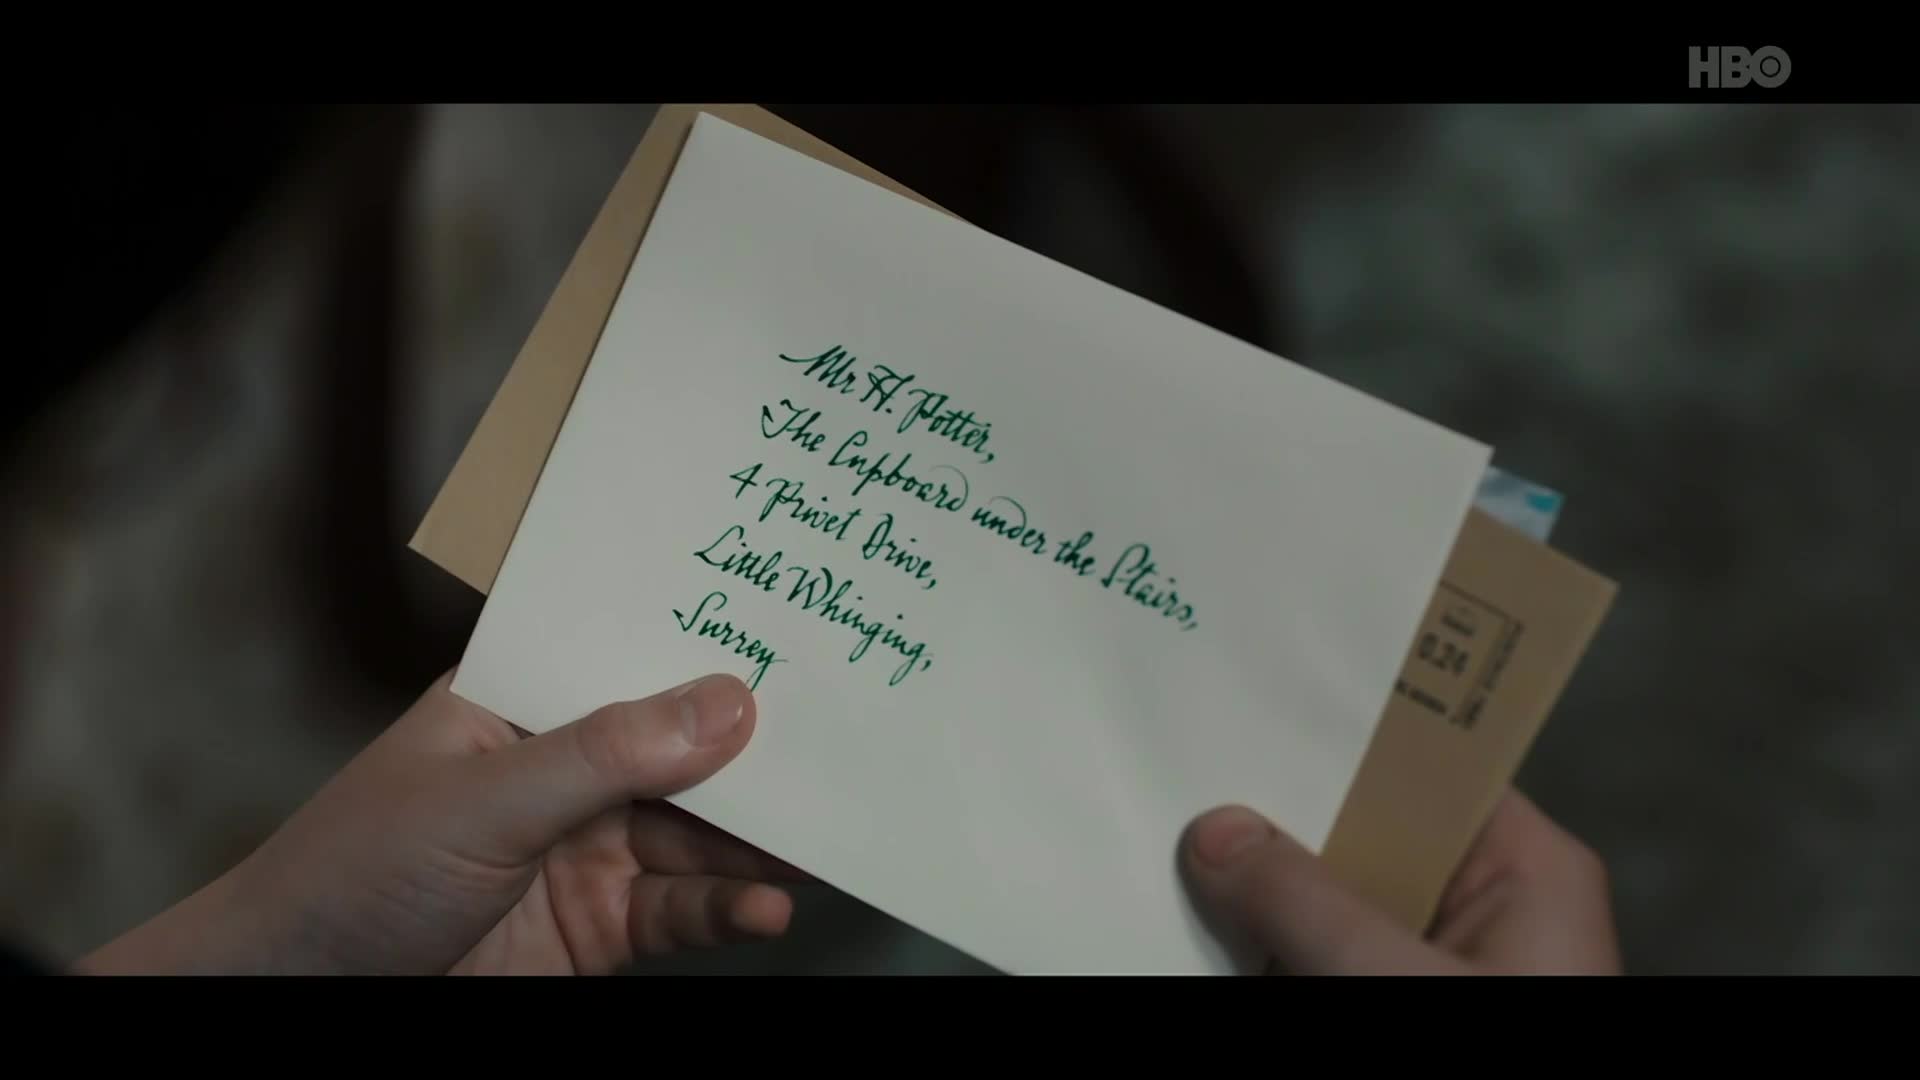 HBO
Mr H. Potter,
The Cupboard under the Stairs,
4 Privet Drive,
Little Whinging,
Surrey
0.24